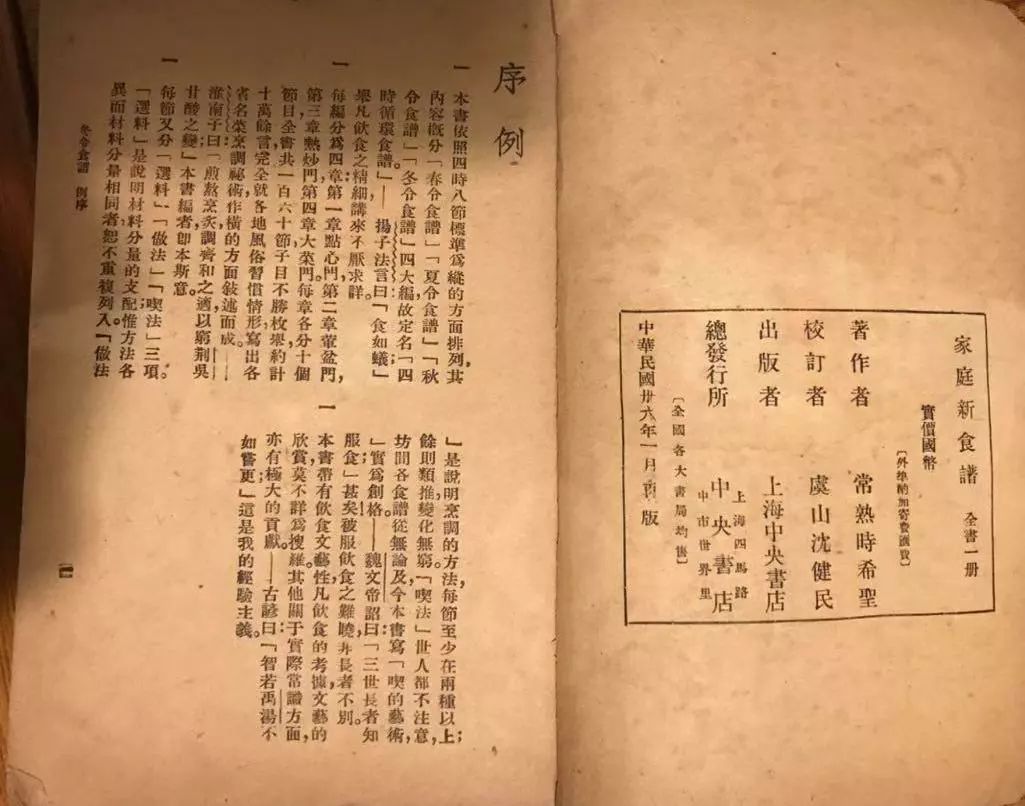 家庭新食譜 全書一册
實價國幣
〔外埠酌加寄費匯費〕
著作者 常熟時希聖
校訂者 虞山沈健民
出版者 上海中央書店
總發行所 中央書店
上海四馬路
中市世界里
〔全國各大書局均售〕
中華民國卅六年一月再版
序例
一 本書依照四時八節標準爲縱的方面排列,其
內容概分「春令食譜」「夏令食譜」「秋
令食譜」「冬令食譜」四大編,故定名「四
時循環食譜。」——揚子法言曰:「食如蟻」
舉凡飲食之精細,講來不厭求詳。
一 每編分爲四章:第一章點心門,第二章葷盆門,
第三章熱炒門,第四章大菜門。每章各分十個
節目,全書共一百六十節,子目不勝枚舉,約計
十萬餘言,完全就各地風俗習慣情形寫出各
省名菜烹調祕術作橫的方面敍述而成——
淮南子曰:「煎熬烹炙,調齊和之適,以窮荆吳
甘酸之變」本書編者卽本斯意。
一 每節又分「選料」「做法」「喫法」三項。
「選料」是說明材料分量的支配;惟方法各
異而材料分量相同者,恕不重複列入。「做法
」是說明烹調的方法,每節至少在兩種以上;
餘則類推,變化無窮。「喫法」世人都不注意,
坊間各食譜從無論及,今本書寫「喫的藝術,
」實爲創格——魏文帝詔曰:「三世長者知
服食;」甚矣被服飲食之難曉,非長者不別。
一 本書帶有飲食文藝性,凡飲食的考據,文藝的
欣賞,莫不詳爲搜羅。其他關于實際常識方面,
亦有極大的貢獻——古諺曰:「智若禹湯,不
如嘗更;」這是我的經驗主義。
冬令食譜 例序
一